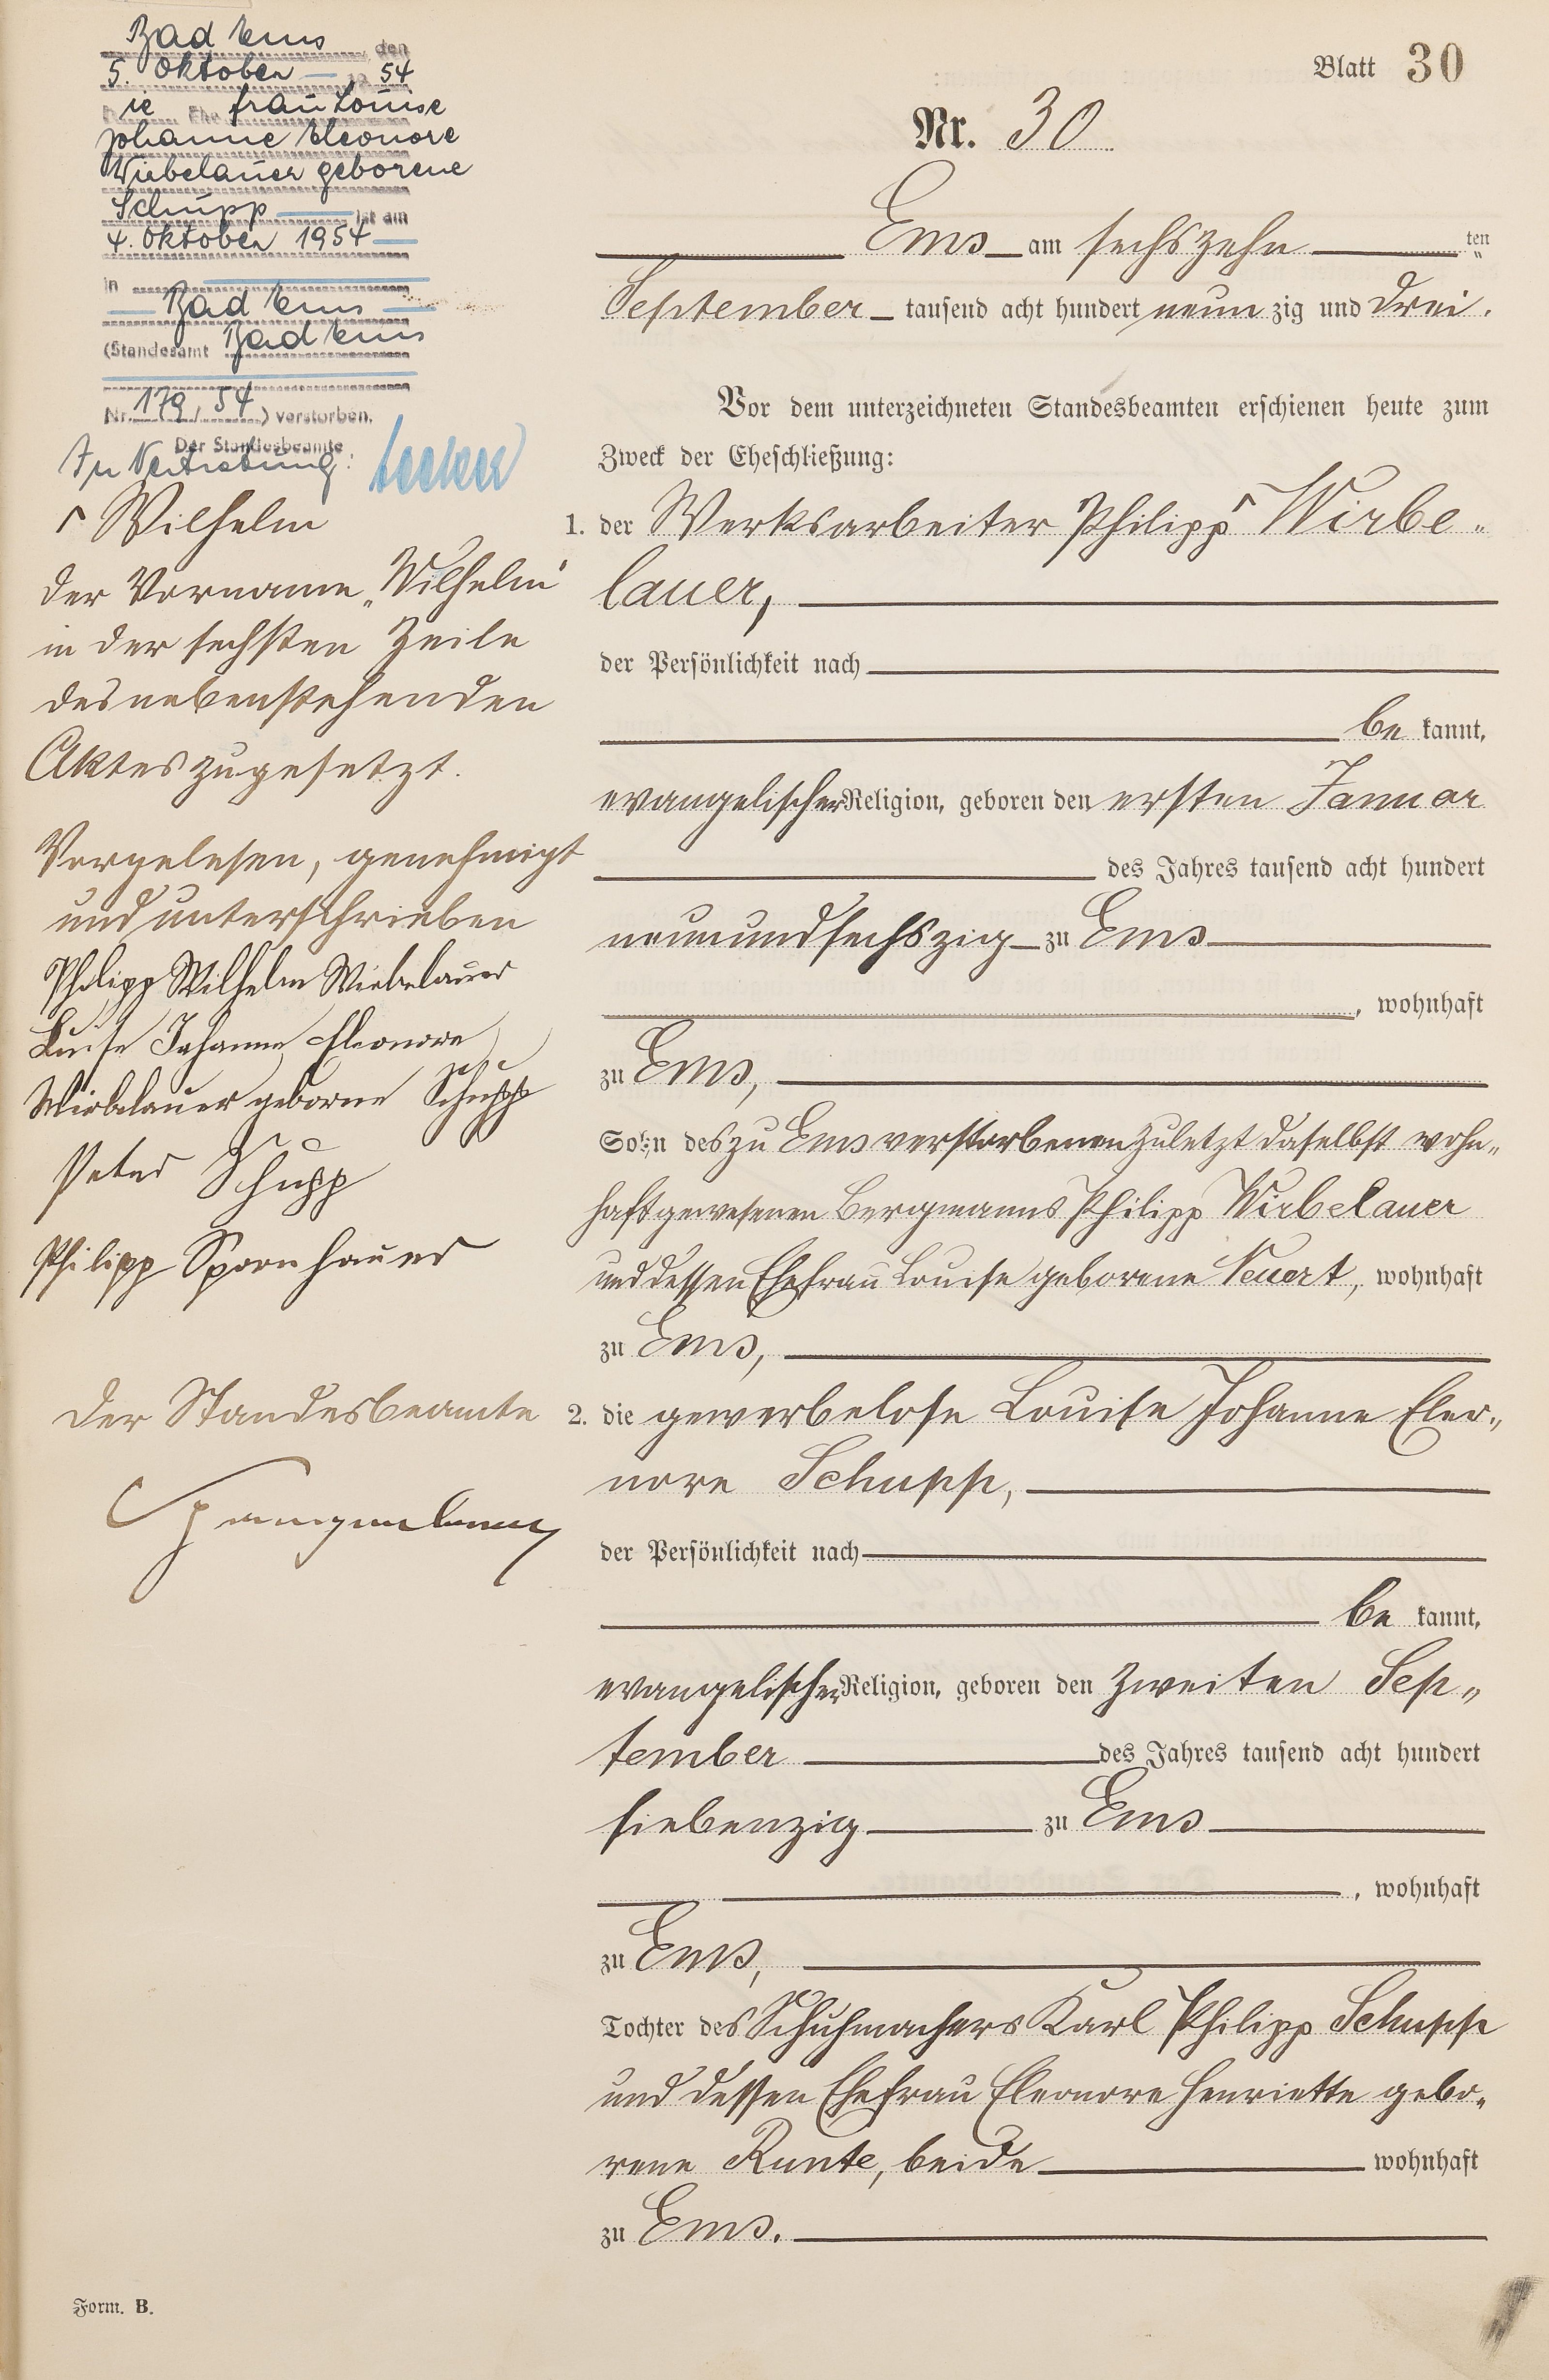 Bad Ems, den
5. Oktober 1954
Die Ehefrau Louise
Johanne Eleonore
Wirbelauer geborene
Schupp ist am
4. Oktober 1954
in
Bad Ems
(Standesamt Bad Ems
Nr. 179/54) verstorben.
Der Standesbeamte
In Vertretung:
Γ Wilhelm
Der Vorname „Wilhelm"
in der sechsten Zeile
des nebenstehenden
Aktes zugesetzt.
Vorgelesen, genehmigt
und unterschrieben
Philipp Wilhelm Wirbelauer
Luise Johanne Eleonore
Wirbelauer geborne Schupp
Peter Schupp
Philipp Spornhauer
Der Standesbeamte
Blatt 30
Nr. 30
Ems am sechszehn ten
September tausend acht hundert neun zig und drei.
Vor dem unterzeichneten Standesbeamten erschienen heute zum
Zweck der Eheschließung:
1. der Werksarbeiter Philipp Γ Wirbe-
lauer,
der Persönlichkeit nach
be kannt,
evangelischer Religion, geboren den ersten Januar
des Jahres tausend acht hundert
neunundsechszig zu Ems
, wohnhaft
zu Ems,
Sohn des zu Ems verstorbenen zuletzt daselbst wohn-
haft gewesenen Bergmanns Philipp Wirbelauer
und dessen Ehefrau Louise geborene Neuert, wohnhaft
zu Ems,
2. die gewerbelose Louise Johanne Eleo-
nore Schupp,
der Persönlichkeit nach
be kannt,
evangelischer Religion, geboren den zweiten Sep-
tember des Jahres tausend acht hundert
siebenzig zu Ems
, wohnhaft
zu Ems,
Tochter des Schuhmachers Karl Philipp Schupp
und dessen Ehefrau Eleonore Henriette gebo-
rene Runte, beide wohnhaft
zu Ems.
Form. B.